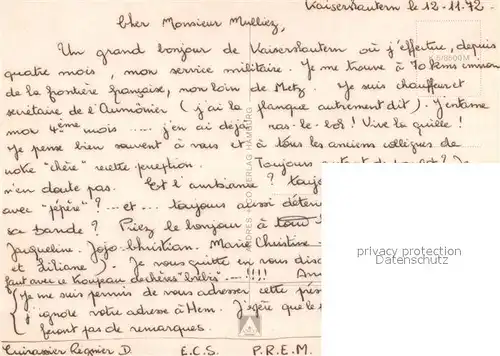 Kaiserslautern le 12-11.72
Cher Monsieur Mulliez,
Un grand bonjour de Kaiserslautern où j'effectue, depuis
quatre mois, mon service militaire. Je me trouve à 70 kms environ
de la frontière française, non loin de Metz. Je suis chauffeur et
secrétaire de l'Aumônier (j'ai la planque autrement dit). J'entame
mon 4ème mois ..... j'en ai déjà ras-le-bol! Vive la quille!
Je pense bien souvent à vous et à tous les anciens collègues de
notre "chère" recette perception. Toujours
n'en doute pas. Est l'ambiance?
avec "pépère"? ...et... toujours aussi
sa bande? Priez le bonjour à
Jacqueline. Jojo. Christian. Marie Christine
et Liliane). Je vous quitte en vous
faut avec ce troupeau de chères "brebis"...!!!!
(Je me suis permis de vous adresser cette
j'ignore votre adresse à Hem. J'espère que le
feront pas de remarques.
Cuirassier Regnier D. E.C.S. P.R.E.M.
privacy protection
Datenschutz